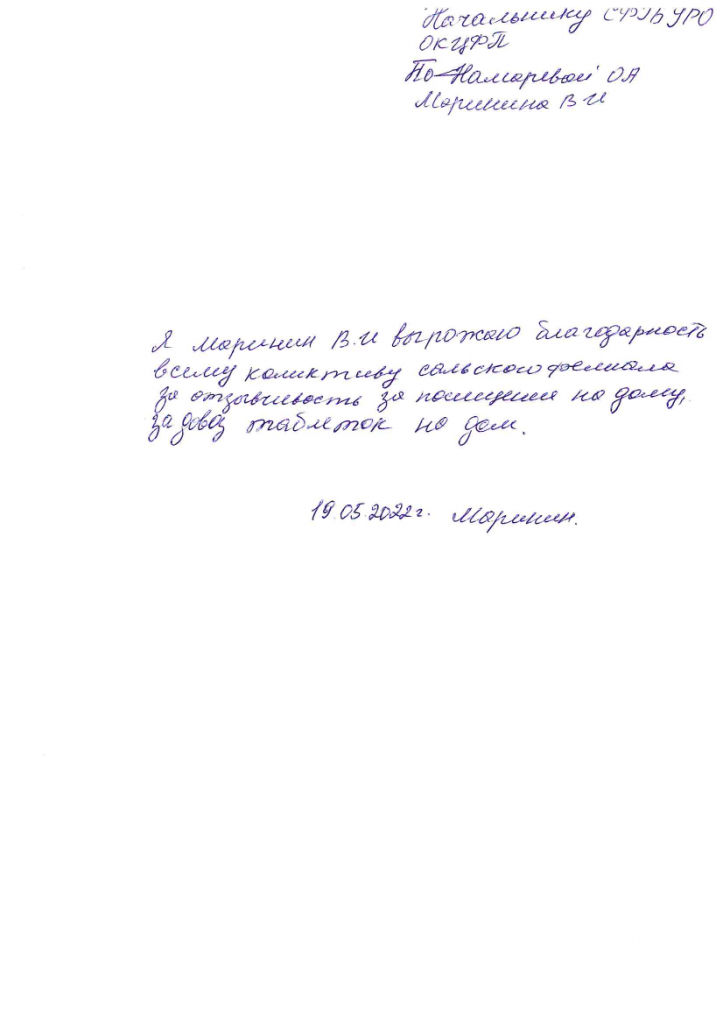 Начальнику СФГБУРО
ОКЦФП
Понамаревой ОА
Маринина В И
Я Маринин В.И вырожаю благодарность
всиму коликтиву сальского фелиала
за отзывчивость за посищение на дому,
за довоз таблеток на дом.
19.05.2022г. Маринин.